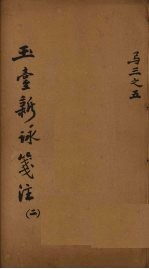 马三之五
玉臺新詠箋注
(二)